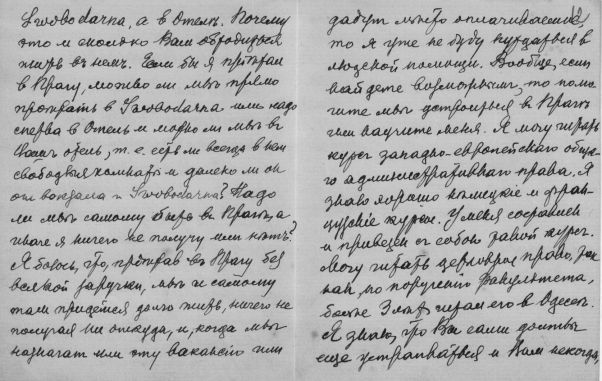 Swobodarna, а в Отель. Почему
это и сколько Вам обходится
жизнь въ немъ. Если бы я приѣхал
в Прагу, можно ли мнѣ прямо
проѣхать в Swobodarna или надо
сперва в Отель и можно ли мнѣ в
отель, т. е. есть ли всегда в нем
свободныя комнаты и далеко ли он
от вокзала и Swobodarna? Надо
ли мнѣ самому быть в Прагѣ, а
иначе я ничего не получу или нѣтъ?
Я боюсь, что, приѣхав въ Прагу без
всякой заручки, мнѣ и самому
там придется долго жить, ничего не
получая ни откуда, и, когда мнѣ
назначат или эту вакансію или
дадут мѣсто оплачиваемое,
то я уже не буду нуждаться в
людской помощи. Вообще, если
найдете возможным, то помо-
гите мнѣ устроиться в Прагѣ
или научите меня. Я могу читать
курс западно-европейскаго обща-
го административнаго права. Я
знаю хорошо нѣмецкіе и фран-
цузскіе курсы. У меня сохранен
и привезен съ собою такой курс.
Могу читать церковное право, так
как, по порученію Факультета,
болѣе 3 лѣт, читал его в Одессѣ.
Я знаю, что Вы сами должны
еще устраиваться и Вам некогда,